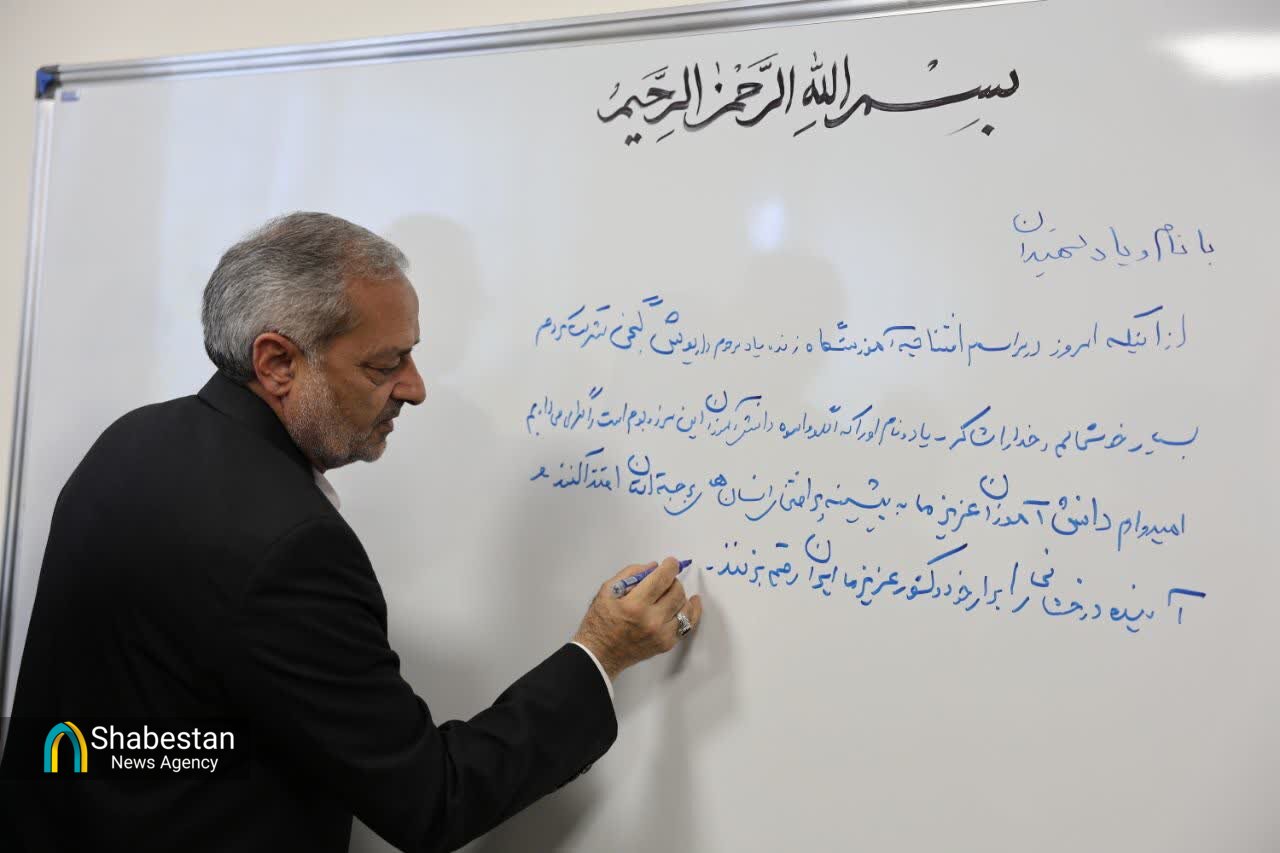 بِسْمِ اللهِ الرَّحْمٰنِ الرَّحِیمِ
با نام و یاد شهیدان
از اینکه امروز در مراسم افتتاحیه آموزشگاه زنده یاد مرحوم داریوش گنجی شرکت کردم
بسیار خوشحالم و خدا را شاکر - یاد و نام او را که الگو و اسوه دانش آموزان این مرز و بوم است را گرامی می داریم
امیدوارم دانش آموزان عزیز ما به پیشینه پر افتخار انسان های برجسته ایران اقتدا کنند و
آینده درخشانی را برای خود و کشور عزیز ما ایران رقم بزنند -
Shabestan
News Agency